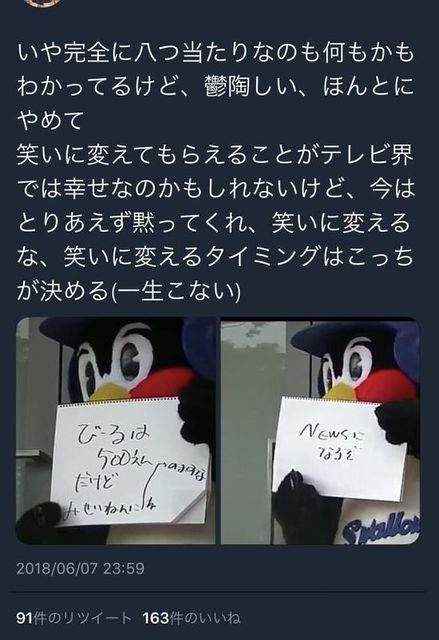 いや完全に八つ当たりなのも何もかも
わかってるけど、鬱陶しい、ほんとに
やめて
笑いに変えてもらえることがテレビ界
では幸せなのかもしれないけど、今は
とりあえず黙ってくれ、笑いに変える
な、笑いに変えるタイミングはこっち
が決める(一生こない)
びーるは
500えん
だけど
みせいねんにな
のますな
NEWSに
なるぞ
Swallo
2018/06/07 23:59
91件のリツイート 163件のいいね